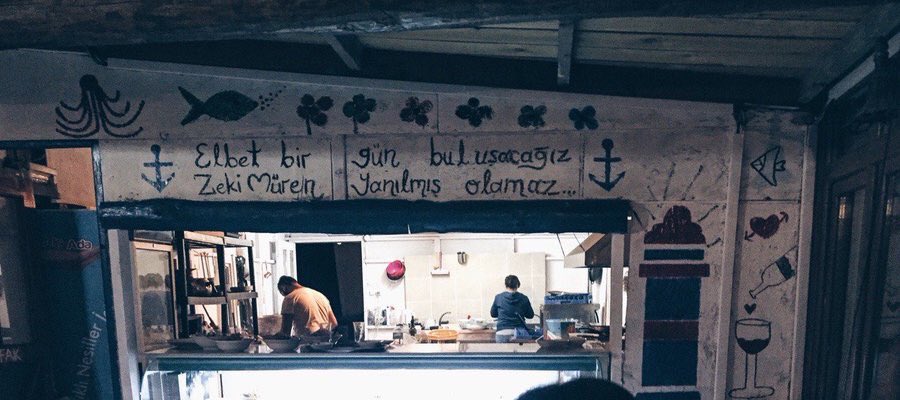 Elbet bir gün buluşacağız
Zeki Müren yanılmış olamaz...
Ada
Nesiller
FAK